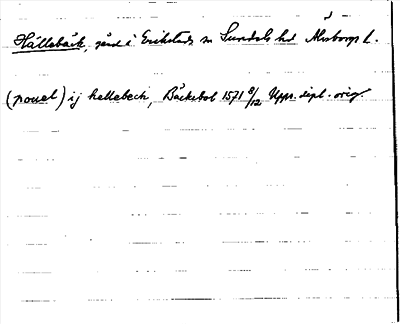 Hällebäck, gård i Erikstads sn Sundals hd Älvsborgs l.
(pouel) ij hellebech, Bäcksbol 1571 8/12 Upps. dipl. orig.